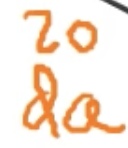 20
da